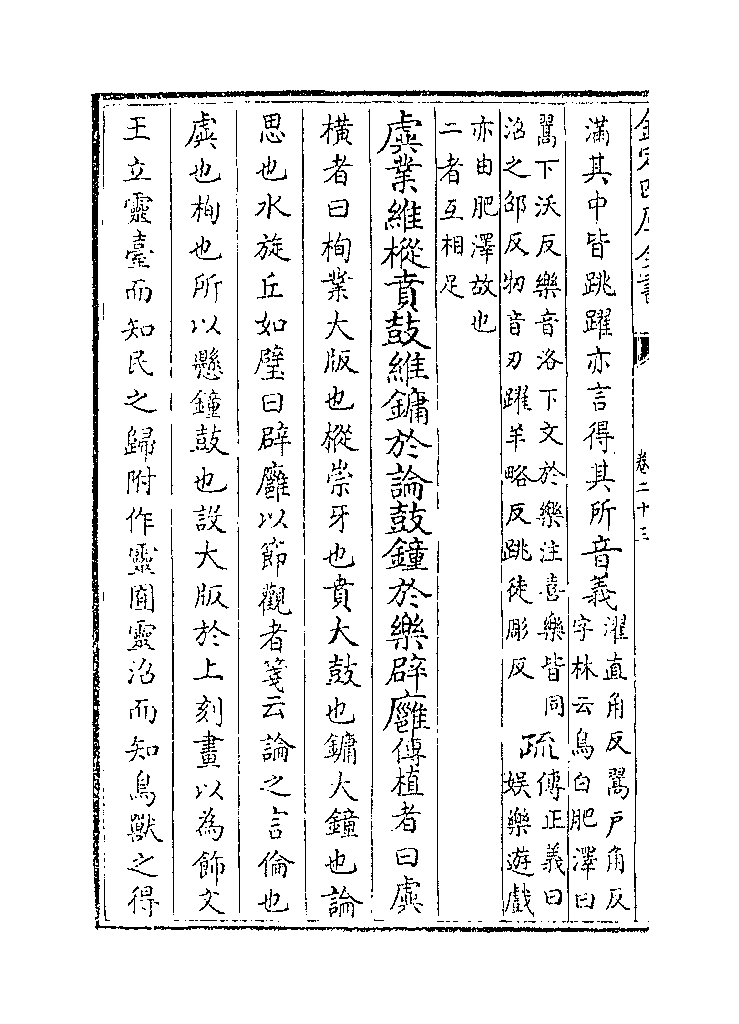 欽定四庫全書 卷二十三
滿其中皆跳躍亦言得其所音義濯直角反翯戶角反
字林云鳥白肥澤曰
翯下沃反樂音洛下文於樂注喜樂皆同
沼之邵反牣音刃躍羊略反跳徒彫反
疏傳正義曰
娛樂遊戲
亦由肥澤故也
二者互相足
虡業維樅賁鼓維鏞於論鼓鐘於樂辟廱傳植者曰虡
橫者曰栒業大版也樅崇牙也賁大鼓也鏞大鐘也論
思也水旋丘如璧曰辟廱以節觀者箋云論之言倫也
虡也栒也所以懸鐘鼓也設大版於上刻畫以為飾文
王立靈臺而知民之歸附作靈囿靈沼而知鳥獸之得